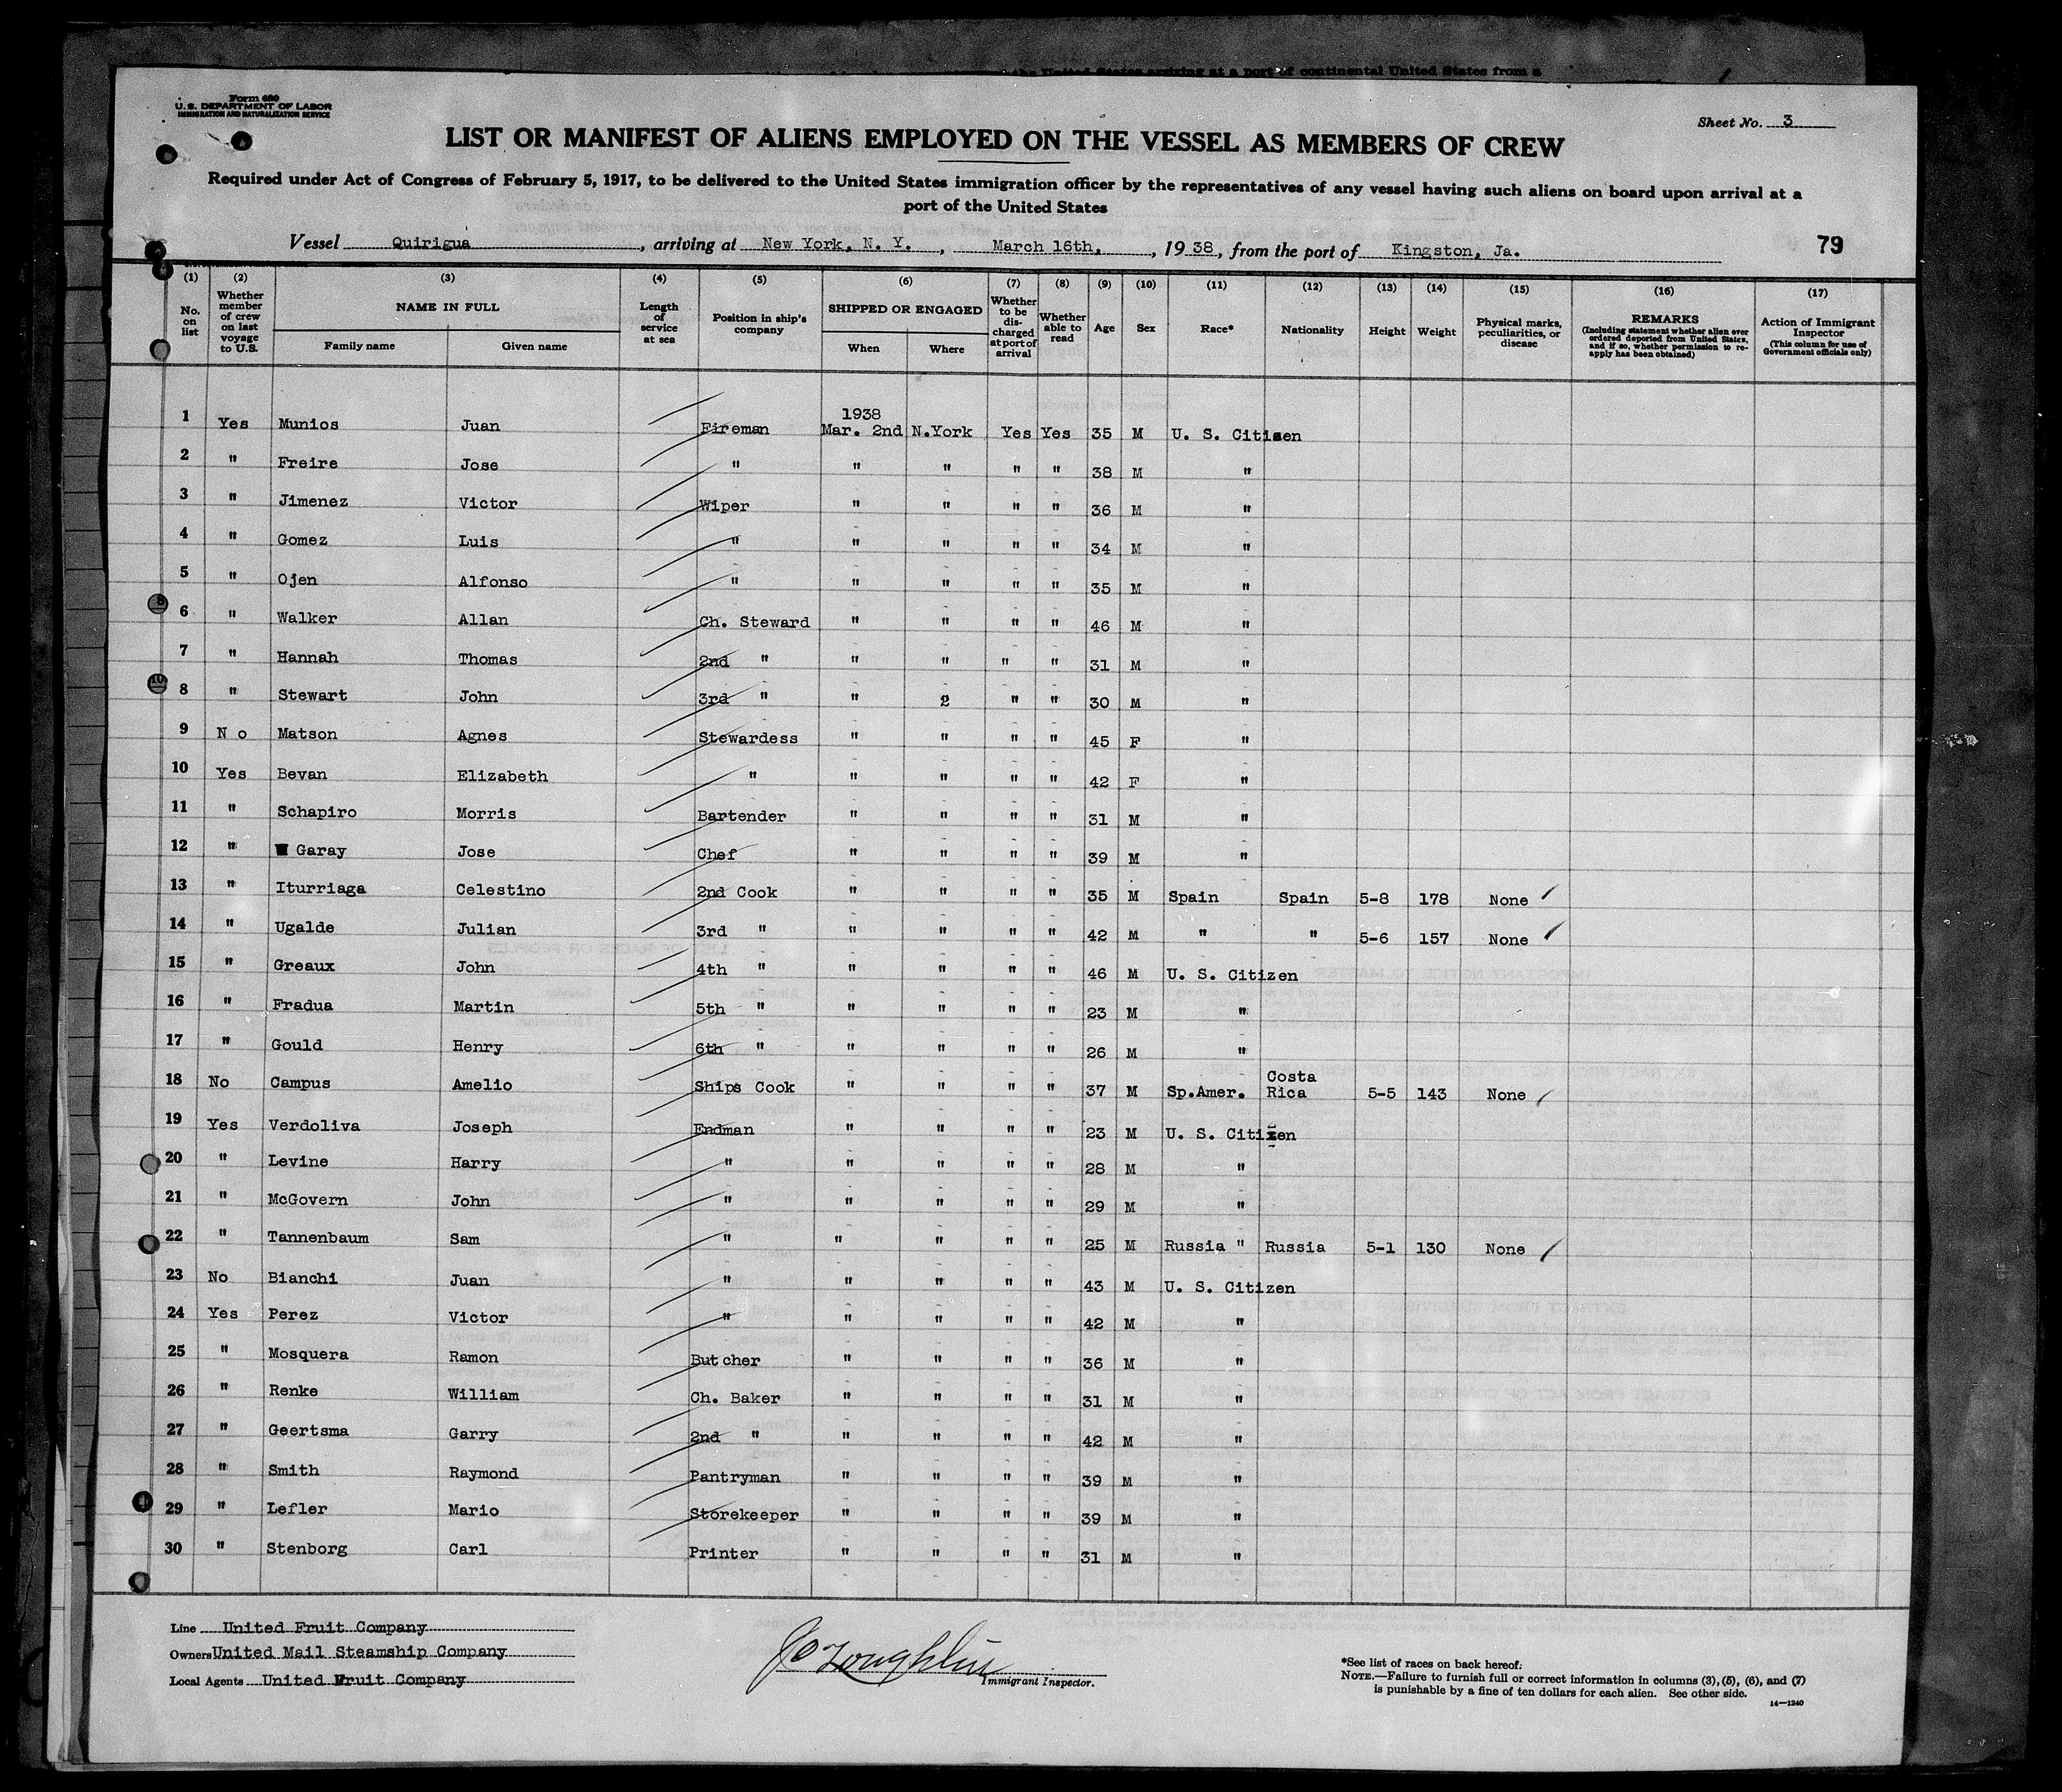 Form 680
U. S. DEPARTMENT OF LABOR
IMMIGRATION AND NATURALIZATION SERVICE
Sheet No. 3
LIST OR MANIFEST OF ALIENS EMPLOYED ON THE VESSEL AS MEMBERS OF CREW
Required under Act of Congress of February 5, 1917, to be delivered to the United States immigration officer by the representatives of any vessel having such aliens on board upon arrival at a
port of the United States
Vessel Quirigua, arriving at New York, N. Y., March 16th, 1938, from the port of Kingston, Ja. 79
(1) (2) (3) (4) (5) (6) (7) (8) (9) (10) (11) (12) (13) (14) (15) (16) (17)
No. on list
Whether member of crew on last voyage to U.S.
NAME IN FULL
Family name
Given name
Length of service at sea
Position in ship's company
SHIPPED OR ENGAGED
When
Where
Whether to be discharged at port of arrival
Whether able to read
Age
Sex
Race*
Nationality
Height
Weight
Physical marks, peculiarities, or disease
REMARKS
(Including statement whether alien ever ordered deported from United States, and if so, whether permission to reapply has been obtained)
Action of Immigrant Inspector
(This column for use of Government officials only)
1 Yes Munios Juan Fireman 1938 Mar. 2nd N.York Yes Yes 35 M U. S. Citizen
2 " Freire Jose " " " " " 38 M "
3 " Jimenez Victor Wiper " " " " 36 M "
4 " Gomez Luis " " " " " 34 M "
5 " Ojen Alfonso " " " " " 35 M "
6 " Walker Allan Ch. Steward " " " " 46 M "
7 " Hannah Thomas 2nd " " " " " 31 M "
8 " Stewart John 3rd " " 2 " " 30 M "
9 N o Matson Agnes Stewardess " " " " 45 F "
10 Yes Bevan Elizabeth " " " " " 42 F "
11 " Schapiro Morris Bartender " " " " 31 M "
12 " Garay Jose Chef " " " " 39 M "
13 " Iturriaga Celestino 2nd Cook " " " " 35 M Spain Spain 5-8 178 None
14 " Ugalde Julian 3rd " " " " " 42 M " " 5-6 157 None
15 " Greaux John 4th " " " " " 46 M U. S. Citizen
16 " Fradua Martin 5th " " " " " 23 M "
17 " Gould Henry 6th " " " " " 26 M "
18 No Campus Amelio Ships Cook " " " " 37 M Sp.Amer. Costa Rica 5-5 143 None
19 Yes Verdoliva Joseph Endman " " " " 23 M U. S. Citizen
20 " Levine Harry " " " " " 28 M "
21 " McGovern John " " " " " 29 M "
22 " Tannenbaum Sam " " " " " 25 M Russia " Russia 5-1 130 None
23 No Bianchi Juan " " " " " 43 M U. S. Citizen
24 Yes Perez Victor " " " " " 42 M "
25 " Mosquera Ramon Butcher " " " " 36 M "
26 " Renke William Ch. Baker " " " " 31 M "
27 " Geertsma Garry 2nd " " " " " 42 M "
28 " Smith Raymond Pantryman " " " " 39 M "
29 " Lefler Mario Storekeeper " " " " 39 M "
30 " Stenborg Carl Printer " " " " 31 M "
Line United Fruit Company
Owners United Mail Steamship Company
Local Agents United Fruit Company
Immigrant Inspector.
*See list of races on back hereof.
NOTE.—Failure to furnish full or correct information in columns (3), (5), (6), and (7)
is punishable by a fine of ten dollars for each alien. See other side.
14—1240